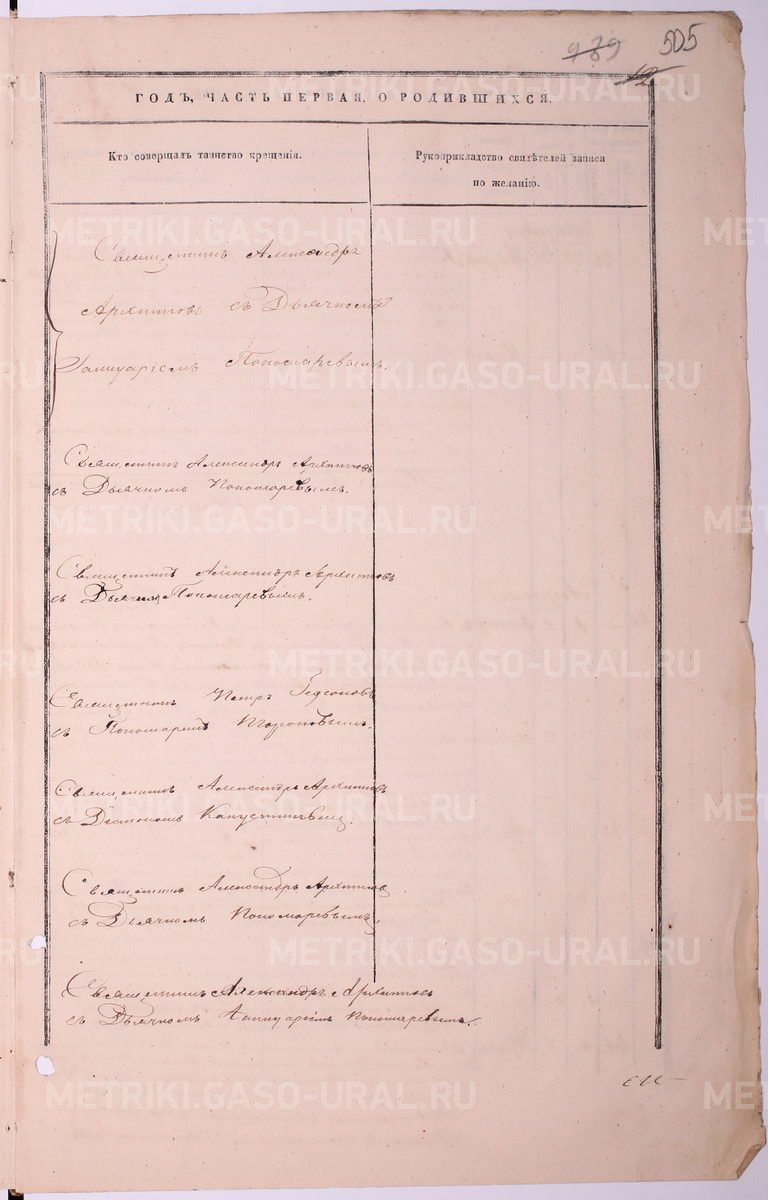 989 505
12
ГОДЪ, ЧАСТЬ ПЕРВАЯ, О РОДИВШИХСЯ.
Кто совершалъ таинство крещенія.
Рукоприкладство свидѣтелей записи
по желанію.
Священникъ Александръ
Архиповъ съ Дьячкомъ
Іаннуаріемъ Пономаревымъ.
Священникъ Александръ Архиповъ
съ Дьячкомъ Пономаревымъ.
Священникъ Александръ Архиповъ
съ Дьячкомъ Пономаревымъ.
Священникъ Петръ
съ Пономаремъ
Священникъ Александръ Архиповъ
съ Діакономъ Капустинымъ.
Священникъ Александръ Архиповъ
съ Дьячкомъ Пономаревымъ.
Священникъ Александръ Архиповъ
съ Дьячкомъ Іаннуаріемъ Пономаревымъ.
METRIKI.GASO-URAL.RU